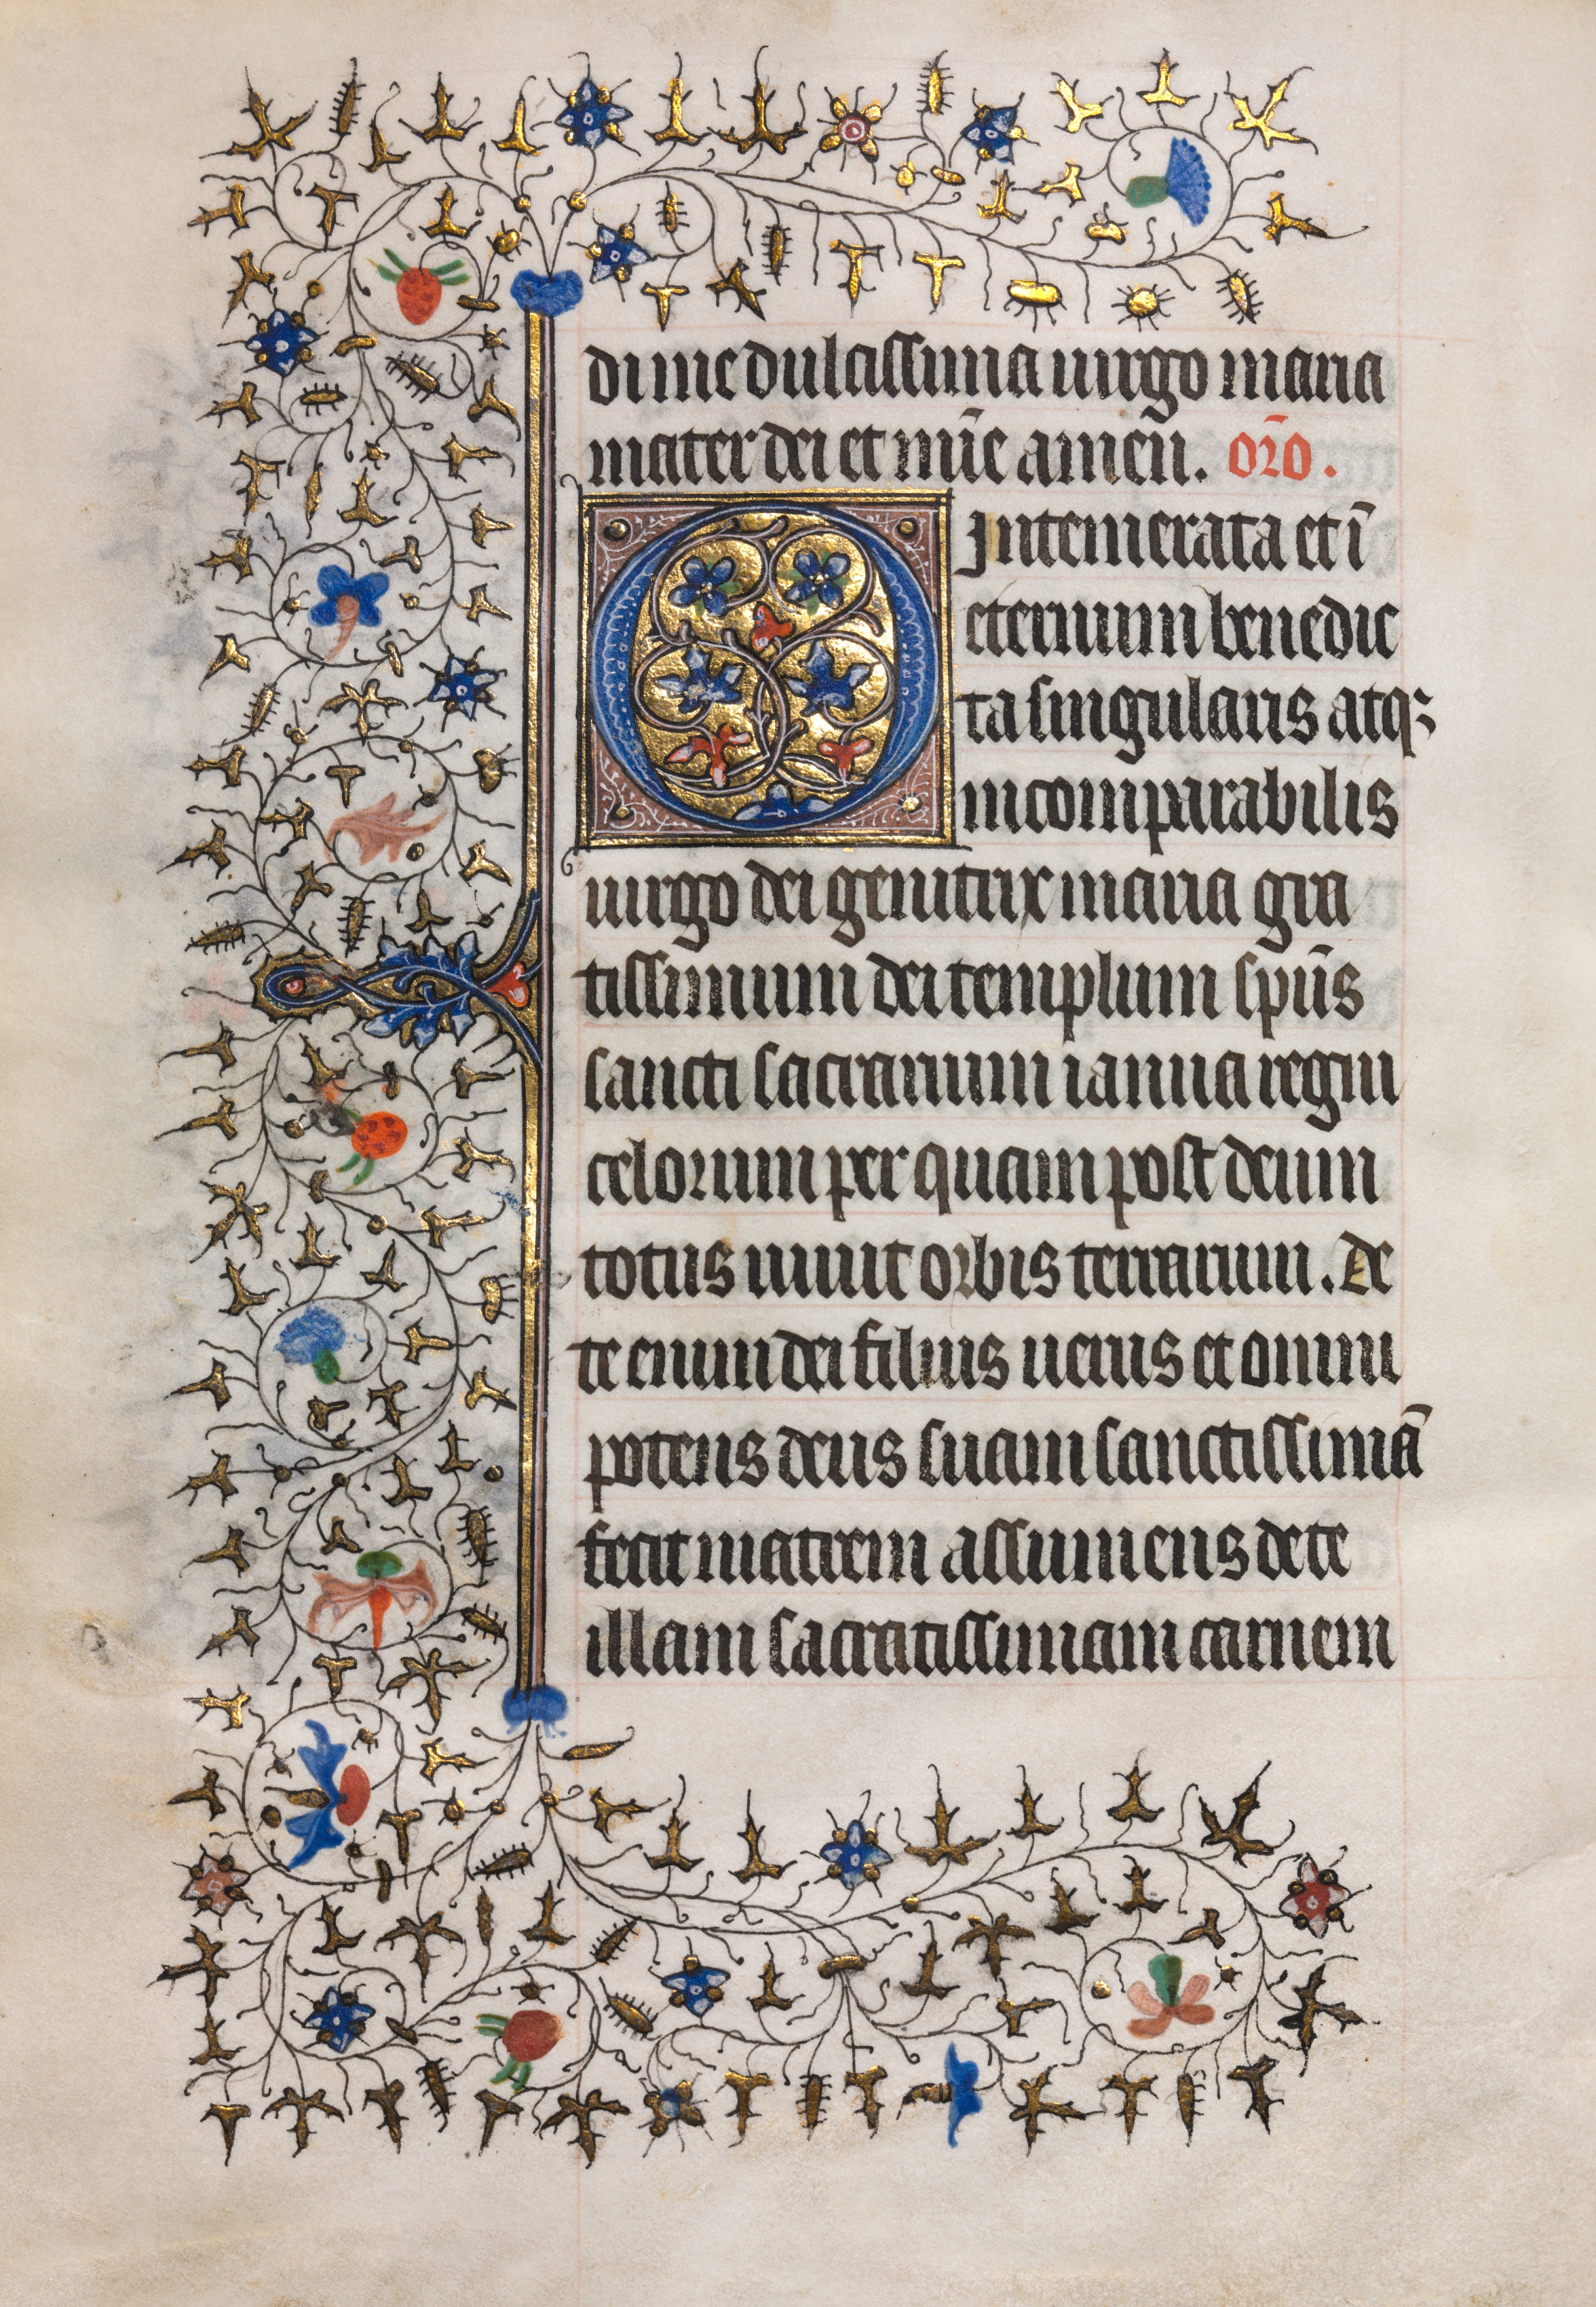 di me dulcissima uirgo maria
mater dei et mīe amen. or̄o.
O intemerata et ī
eternum benedic
ta singularis atq;
incomparabilis
uirgo dei genitrix maria gra
tissimum dei templum spūs
sancti sacrarium ianua regni
celorum per quam post deum
totus uiuit orbis terrarum. De
te enim dei filius uerus et omni
potens deus suam sanctissimā
fecit matrem assumens de te
illam sacratissimam carnem